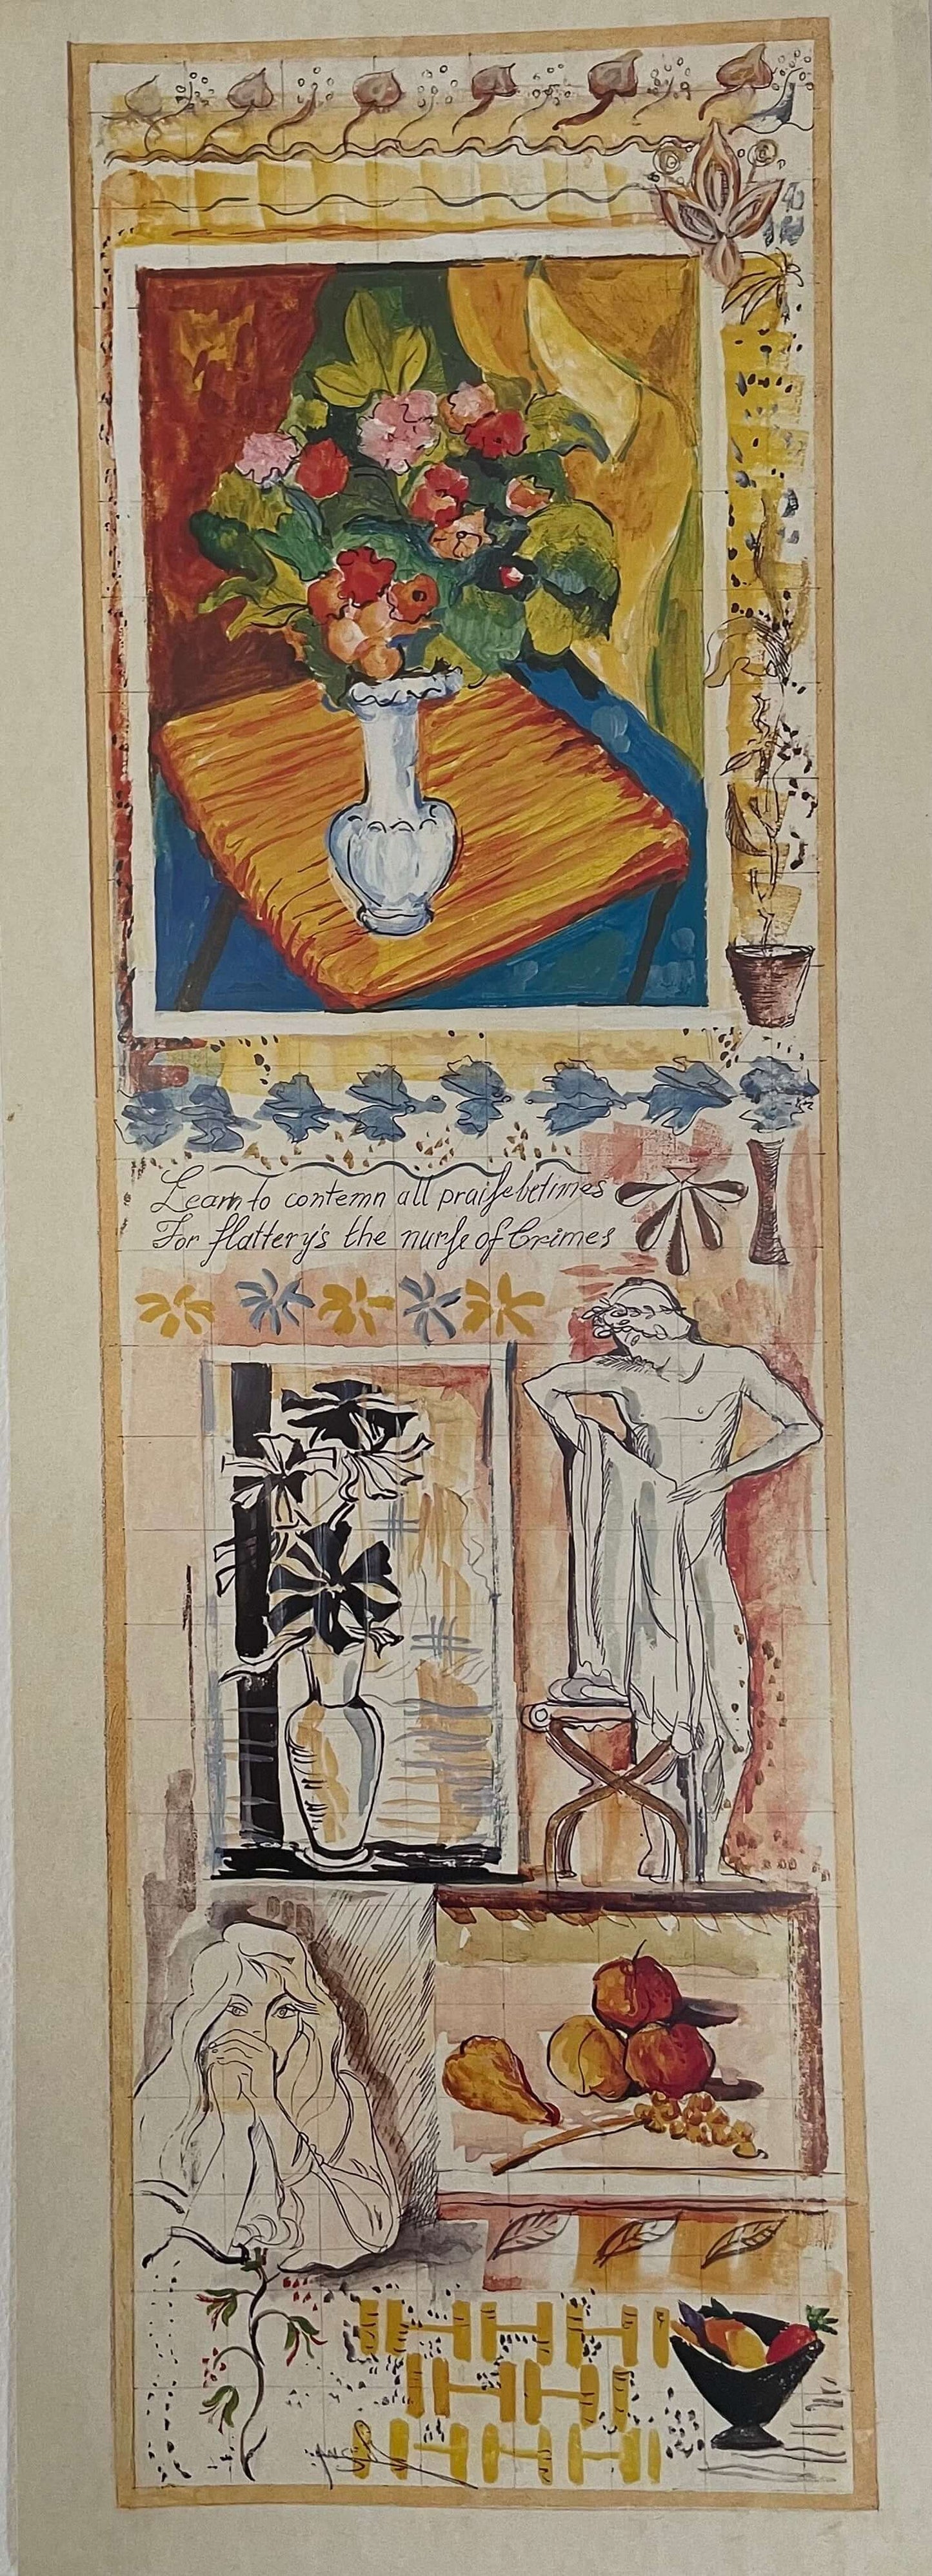 Learn to contemn all praiſe betimes
For flattery's the nurſe of Crimes